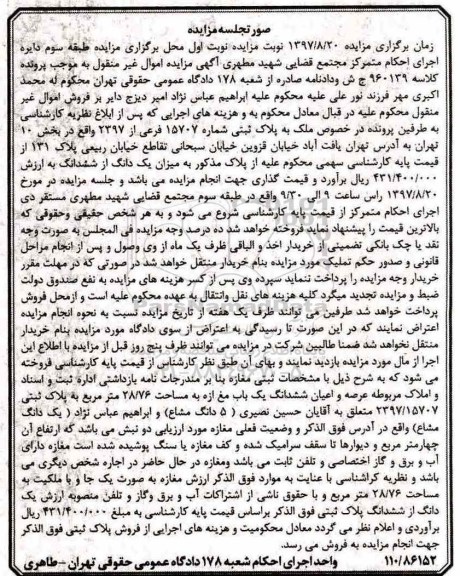 صورتجلسه مزایده
زمان برگزاری مزایده ۱۳۹۷/۸/۲۰ نوبت مزایده نوبت اول محل برگزاری مزایده طبقه سوم دایره
اجرای احکام متمرکز مجتمع قضایی شهید مطهری آگهی مزایده اموال غیر منقول به موجب پرونده
کلاسه ۹۶۰۱۳۹ ج ش ودادنامه صادره از شعبه ۱۷۸ دادگاه عمومی حقوقی تهران محکوم له محمد
اکبری مهر فرزند نور علی علیه محکوم علیه ابراهیم عباس نژاد امیر دیزج دایر بر فروش اموال غیر
منقول محکوم علیه در قبال معادل محکوم به و هزینه های اجرایی که پس از ابلاغ نظریه کارشناسی
به طرفین پرونده در خصوص ملک به پلاک ثبتی شماره ۱۵۷۰۷ فرعی از ۲۳۹۷ واقع در بخش ۱۰
تهران به آدرس تهران یافت آباد خیابان قزوین خیابان سبحانی تقاطع خیابان ربیعی پلاک ۱۳۱ از
قیمت پایه کارشناسی سهمی محکوم علیه از پلاک مذکور به میزان یک دانگ از ششدانگ به ارزش
۴۳۱/۴۰۰/۰۰۰ ریال برآورد و قیمت گذاری جهت انجام مزایده می باشد و جلسه مزایده در مورخ
۱۳۹۷/۸/۲۰ راس ساعت ۹ الی ۹/۳۰ واقع در طبقه سوم مجتمع قضایی شهید مطهری مستقر دی
اجرای احکام متمرکز از قیمت پایه کارشناسی شروع می شود و به هر شخص حقیقی وحقوقی که
بالاترین قیمت را پیشنهاد نماید فروخته خواهد شد ده درصد وجه مزایده فی المجلس به صورت وجه
نقد یا چک بانکی تضمینی از خریدار اخذ و الباقی ظرف یک ماه از وی وصول و پس از انجام مراحل
قانونی و صدور حکم تملیک مورد مزایده بنام خریدار منتقل خواهد شد در صورتی که در مهلت مقرر
خریدار وجه مزایده را پرداخت ننماید سپرده وی پس از کسر هزینه های مزایده به نفع صندوق دولت
ضبط و مزایده تجدید میگرد کلیه هزینه های نقل وانتقال به عهده محکوم علیه است و ازمحل فروش
پرداخت خواهد شد طرفین می توانند ظرف یک هفته از تاریخ مزایده نسبت به نحوه انجام مزایده
اعتراض نمایند که در این صورت تا رسیدگی به اعتراض از سوی دادگاه مورد مزایده بنام خریدار
منتقل نخواهد شد ضمنا طالبین شرکت در مزایده می توانند ظرف پنج روز قبل از مزایده با اطلاع این
اجرا از مال مورد مزایده بازدید نمایند و بهای آن طبق نظر کارشناس از قیمت پایه کارشناسی فروخته
می شود که به شرح ذیل با مشخصات ثبتی مغازه بنا بر مندرجات نامه بازداشتی اداره ثبت و اسناد
و املاک مربوطه عرصه و اعیان ششدانگ یک باب مغ ازه به مساحت ۲۸/۷۶ متر مربع به پلاک ثبتی
۲۳۹۷/۱۵۷۰۷ متعلق به آقایان حسین نصیری ( ۵ دانگ مشاع) و ابراهیم عباس نژاد ( یک دانگ
مشاع) واقع در آدرس فوق الذکر و وضعیت فعلی مغازه مورد ارزیابی دو نبش می باشد که ارتفاع آن
چهارمتر مربع و دیوارها تا سقف سرامیک شده و کف مغازه یا سنگ پوشیده شده است مغازه دارای
آب و برق و گاز اختصاصی و تلفن ثابت می باشد ومغازه در حال حاضر در اجاره شخص دیگری می
باشد و نظریه کراشناسی با عنایت به موارد فوق الذکر ارزش مغازه به صورت یک جا و با ملکیت به
مساحت ۲۸/۷۶ متر مربع و با حقوق ناشی از اشتراکات آب و برق وگاز و تلفن منصوبه ارزش یک
دانگ از ششدانگ پلاک ثبتی فوق الذکر براساس قیمت پایه کارشناسی به مبلغ ۴۳۱/۴۰۰/۰۰۰ ریال
برآوردی و اعلام نظر می گردد معادل محکومیت و هزینه های اجرایی از فروش پلاک ثبتی فوق الذکر
جهت انجام مزایده به فروش می رسد.
۱۱۰/۸۶۱۵۲ واحد اجرای احکام شعبه ۱۷۸ دادگاه عمومی حقوقی تهران - طاهری